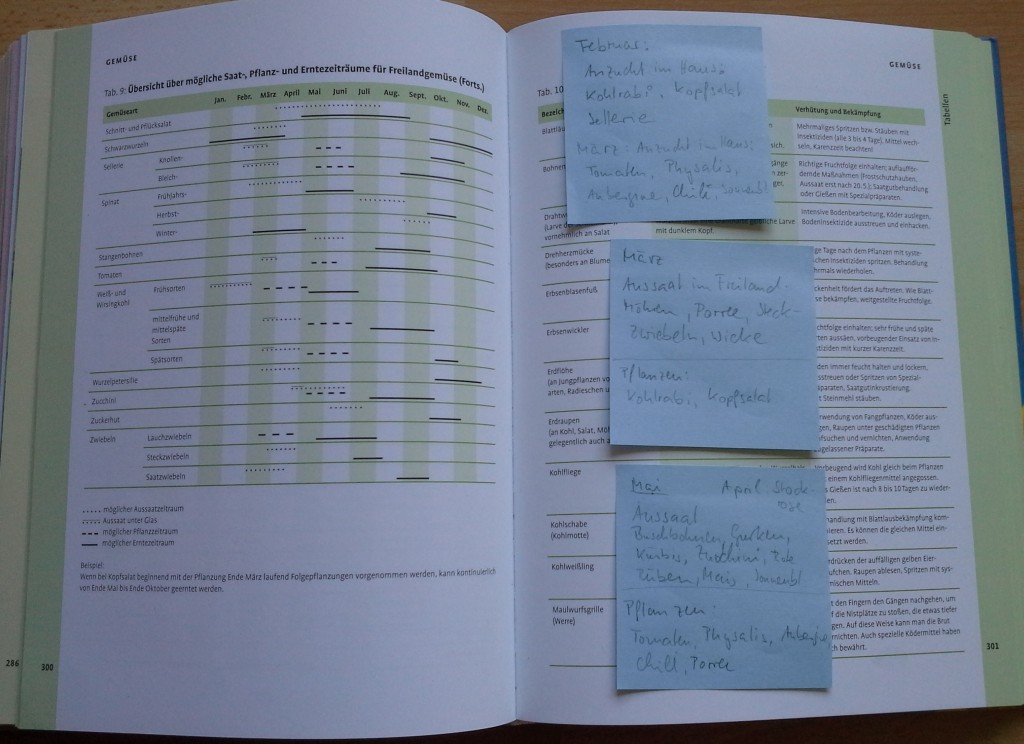 GEMÜSE
Tab. 9: Übersicht über mögliche Saat-, Pflanz- und Erntezeiträume für Freilandgemüse (Forts.)
Gemüseart Jan. Febr. März April Mai Juni Juli Aug. Sept. Okt. Nov. Dez.
Schnitt- und Pflücksalat
Schwarzwurzeln
Sellerie Knollen-
Bleich-
Spinat Frühjahr-
Herbst-
Winter-
Stangenbohnen
Tomaten
Weiß- und Wirsingkohl Frühsorten
mittelfrühe und
mittelspäte
Sorten
Spätsorten
Wurzelpetersilie
Zucchini
Zuckerhut
Zwiebeln Lauchzwiebeln
Steckzwiebeln
Saatzwiebeln
möglicher Aussaatzeitraum
Aussaat unter Glas
möglicher Pflanzzeitraum
möglicher Erntezeitraum
Beispiel:
Wenn bei Kopfsalat beginnend mit der Pflanzung Ende März laufend Folgepflanzungen vorgenommen werden, kann kontinuierlich
von Ende Mai bis Ende Oktober geerntet werden.
286 300
GEMÜSE
Tabellen
Tab. 10
Verhütung und Bekämpfung
Mehrmaliges Spritzen bzw. Stäuben mit
Insektiziden (alle 3 bis 4 Tage). Mittel wech-
seln, Karenzzeit beachten!
Richtige Fruchtfolge einhalten; auflauf-
fördernde Maßnahmen (Frostschutzhauben,
Aussaat erst nach 20. 5.); Saatgutbehandlung
oder Gießen mit Spezialpräparaten.
Intensive Bodenbearbeitung, Köder auslegen,
Bodeninsektizide ausstreuen und einhacken.
vornehmlich an Salat mit dunklem Kopf.
Drehherzmücke
(besonders an Blume
Erbsenblasenfuß
Erbsenwickler
Erdflöhe
(an Jungpflanzen vo
arten, Radieschen u
Erdraupen
(an Kohl, Salat, Mö
gelegentlich auch a
Kohlfliege
Kohlschabe
(Kohlmotte)
Kohlweißling
Maulwurfsgrille
(Werre)
ige Tage nach dem Pflanzen mit syste-
schen Insektiziden spritzen. Behandlung
hrmals wiederholen.
ckenheit fördert das Auftreten. Wie Blatt-
se bekämpfen, weitgestellte Fruchtfolge.
chtfolge einhalten; sehr frühe und späte
rten aussäen, vorbeugender Einsatz von In-
ktiziden mit kurzer Karenzzeit.
den immer feucht halten und lockern,
usstreuen oder Spritzen von Spezial-
äparaten, Saatgutinkrustierung.
t Steinmehl stäuben.
erwendung von Fangpflanzen, Köder aus-
gen, Raupen unter geschädigten Pflanzen
ufsuchen und vernichten, Anwendung
ugelassener Präparate.
Vorbeugend wird Kohl gleich beim Pflanzen
t einem Kohlfliegenmittel angegossen.
s Gießen ist nach 8 bis 10 Tagen zu wieder-
en.
handlung mit Blattlausbekämpfung kom-
nieren. Es können die gleichen Mittel ein-
setzt werden.
rdrücken der auffälligen gelben Eier-
ufchen. Raupen ablesen, Spritzen mit sys-
mischen Mitteln.
t den Fingern den Gängen nachgehen, um
f die Nistplätze zu stoßen, die etwas tiefer
gen. Auf diese Weise kann man die Brut
rnichten. Auch spezielle Ködermittel haben
ch bewährt.
301
Februar:
Anzucht im Haus:
Kohlrabi, Kopfsalat
Sellerie
März: Anzucht im Haus:
Tomaten, Physalis,
Aubergine, Chili, Sonnenbl
März
Aussaat im Freiland
Möhren, Porree, Steck-
zwiebeln, Wicke
Pflanzen:
Kohlrabi, Kopfsalat
Mai April Stock-
rose
Aussaat
Buschbohnen, Gurken,
Kürbis, Zucchini, Rote
Rüben, Mais, Sonnenbl
Pflanzen:
Tomaten, Physalis, Aubergine
Chili, Porree